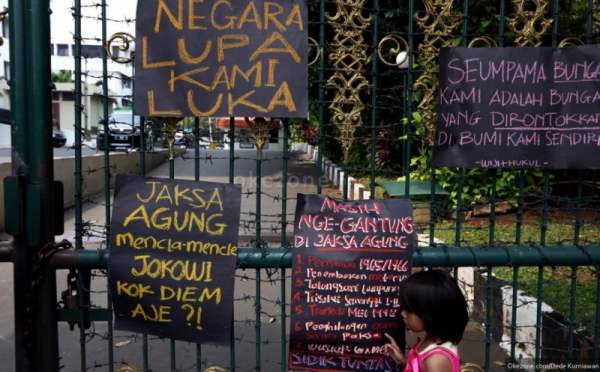 NEGARA
LUPA
KAMI
LUKA
SEUMPAMA BUNGA
KAMI ADALAH BUNGA
YANG DIRONTOKKAN
DI BUMI KAMI SENDIRI
JAKSA
AGUNG
mencla-mencle
JOKOWI
KOK DIEM
AJE ?!
MASIH
NGE-GANTUNG
DI JAKSA AGUNG
1. Peristiwa 1965/1966
2. Penembakan
3. Talangsari Lampung
4. Trisakti Semanggi I-II
5. Tragedi MEI
6. Penghilangan
7.
SIDIK TUNTAS
Okezone.com/Dede Kurniawan